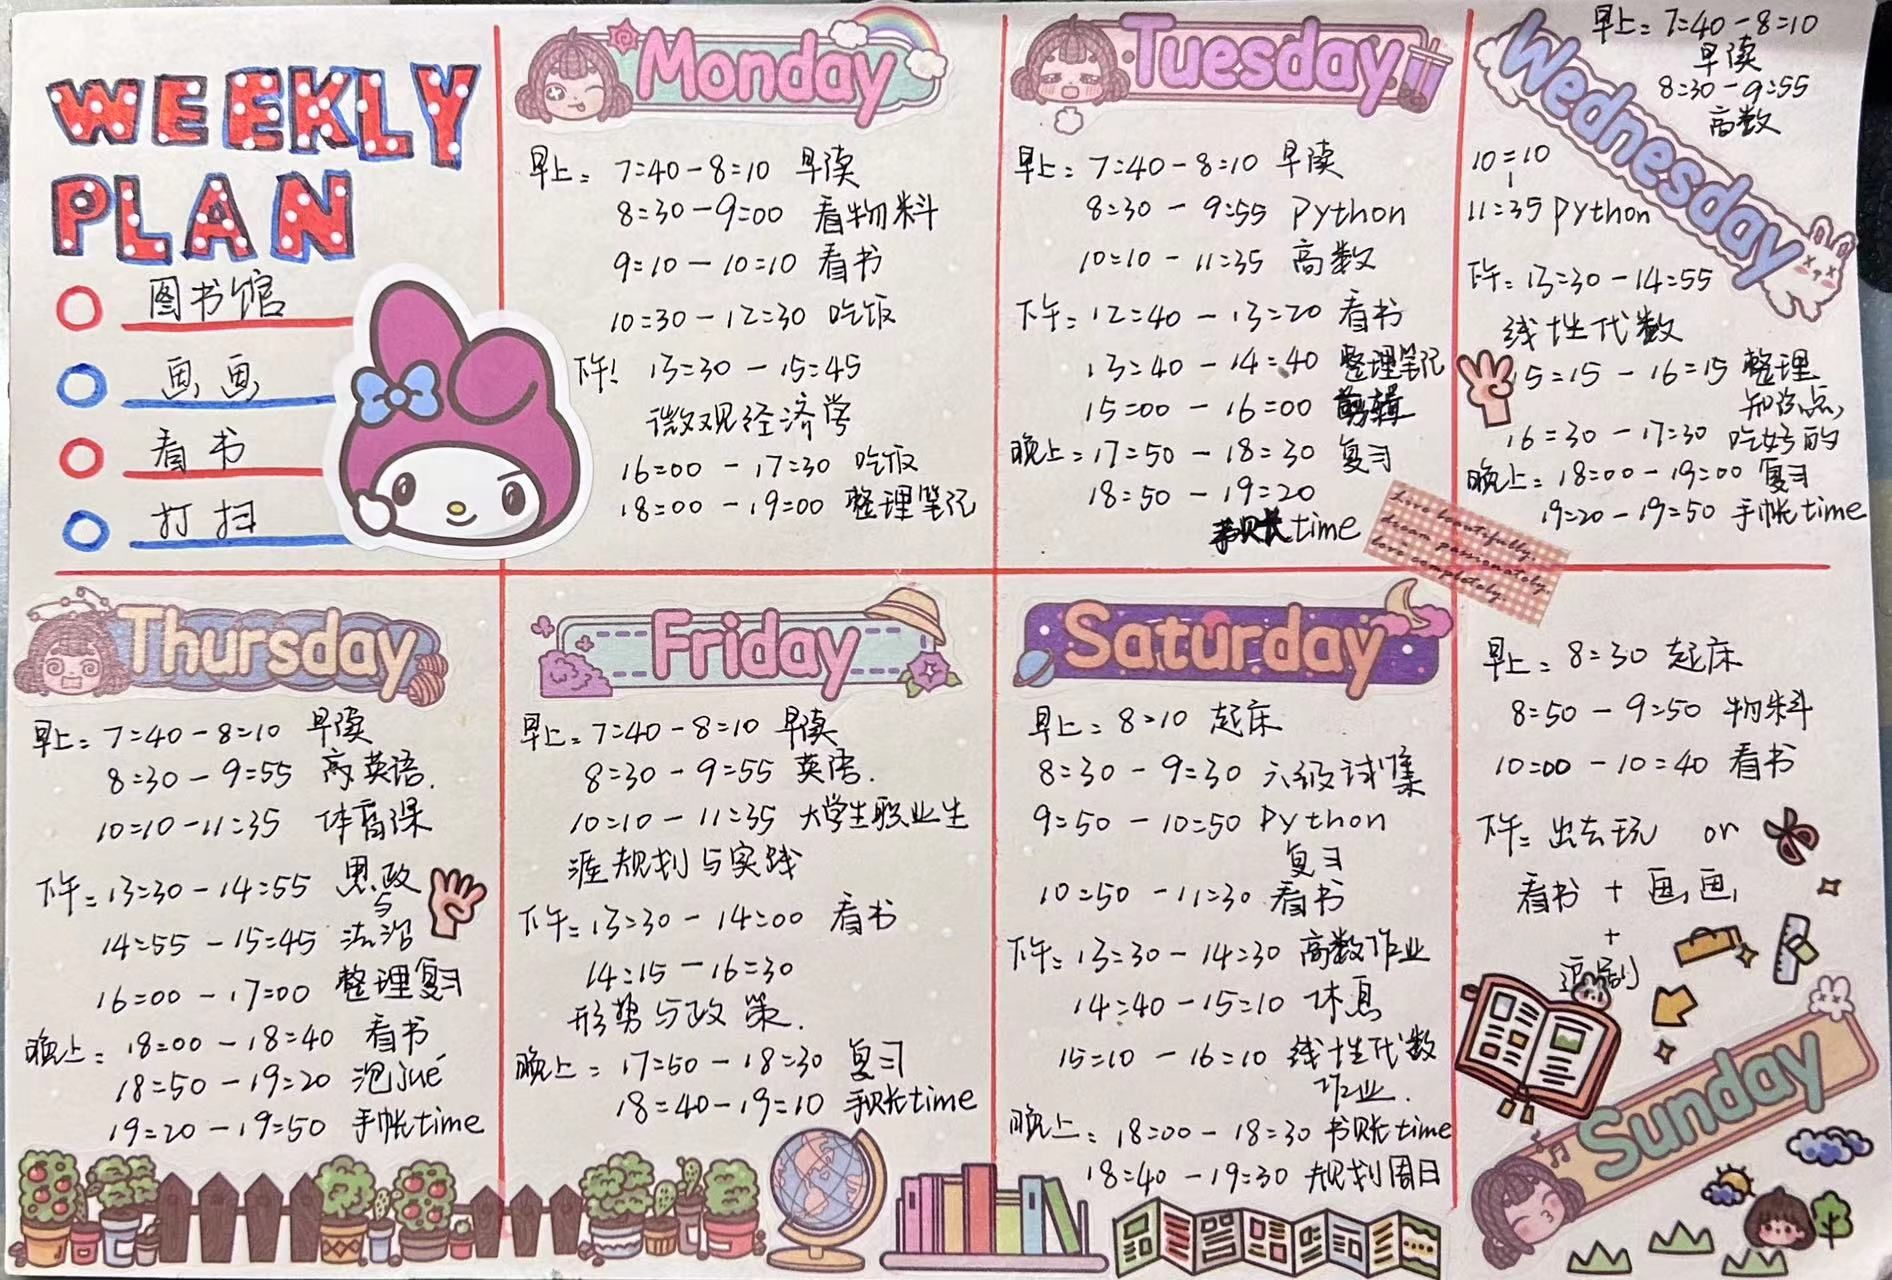 WEEKLY
PLAN
图书馆
画画
看书
打扫
Monday
早上：7:40-8:10 早读
8:30-9:00 看物料
9:10-10:10 看书
10:30-12:30 吃饭
下午！13:30-15:45
微观经济学
16:00-17:30 吃饭
18:00-19:00 整理笔记
Tuesday
早上：7:40-8:10 早读
8:30-9:55 Python
10:10-11:35 高数
下午：12:40-13:20 看书
13:40-14:40 整理笔记
15:00-16:00 剪辑
晚上：17:50-18:30 复习
18:50-19:20
time
Wednesday
早上：7:40-8:10
早读
8:30-9:55
高数
10:10
|
11:35 Python
下午：13:30-14:55
线性代数
15:15-16:15 整理
知识点
16:30-17:30 吃好的
晚上：18:00-19:00 复习
19:20-19:50 手帐time
Live beautifully,
dream passionately,
love completely.
Thursday
早上：7:40-8:10 早读
8:30-9:55 英语.
10:10-11:35 体育课
下午：13:30-14:55 思政
与
14:55-15:45 法治
16:00-17:00 整理复习
晚上：18:00-18:40 看书
18:50-19:20 泡jué
19:20-19:50 手帐time
Friday
早上：7:40-8:10 早读
8:30-9:55 英语.
10:10-11:35 大学生职业生
涯规划与实践
下午：13:30-14:00 看书
14:15-16:30
形势与政策.
晚上：17:50-18:30 复习
18:40-19:10 手账time
Saturday
早上：8:10 起床
8:30-9:30 六级试集
9:50-10:50 Python
复习
10:50-11:30 看书
下午：13:30-14:30 高数作业
14:40-15:10 休息
15:10-16:10 线性代数
作业.
晚上：18:00-18:30 书账time
18:40-19:30 规划周日
早上：8:30 起床
8:50-9:50 物料
10:00-10:40 看书
下午：出去玩 or
看书+画画
+
追剧
Sunday